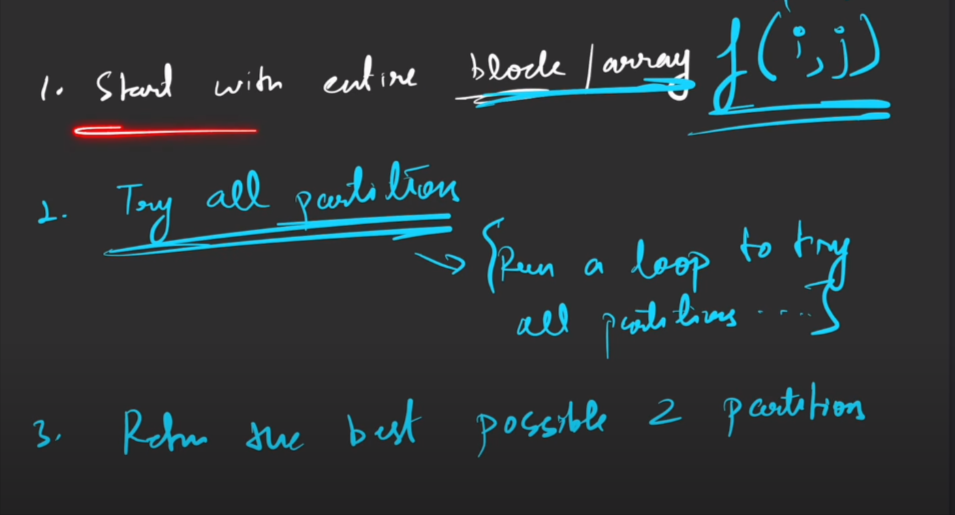 1. Start with entire block/array f(i,j)
2. Try all partition
→ {Run a loop to try
all partitions ....}
3. Return the best possible 2 partition